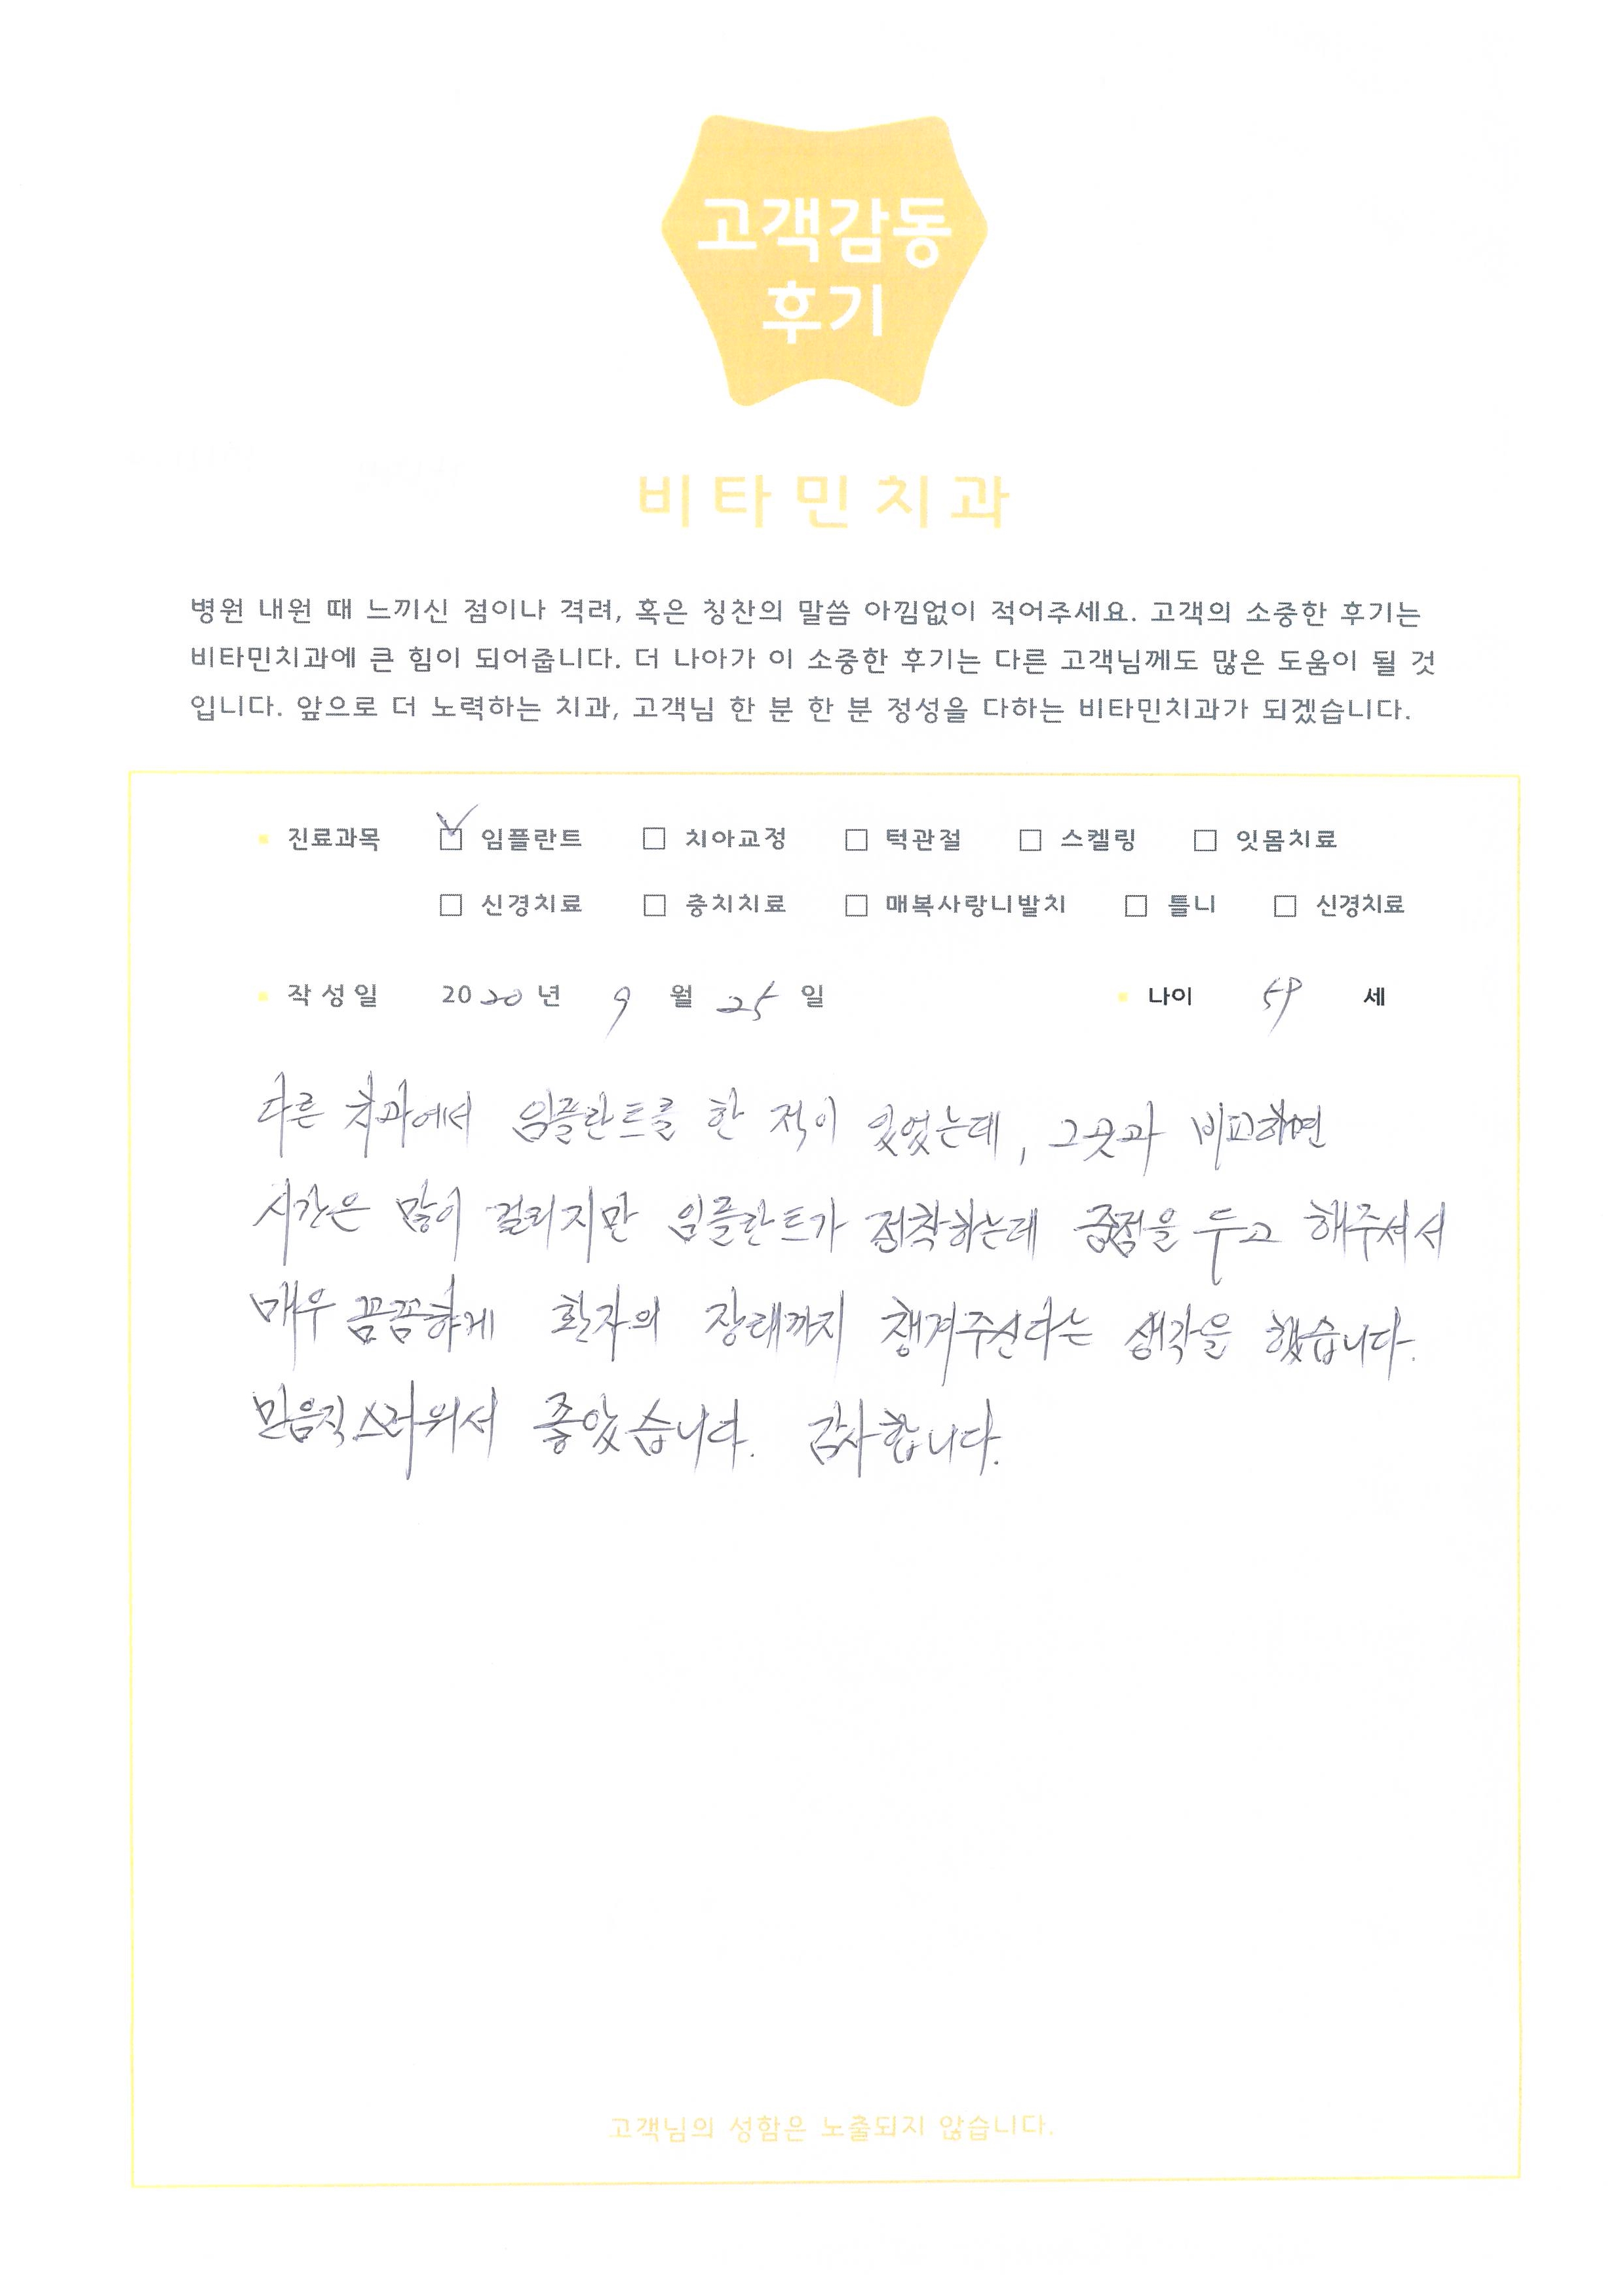 고객감동
후기
비타민치과
병원 내원 때 느끼신 점이나 격려, 혹은 칭찬의 말씀 아낌없이 적어주세요. 고객의 소중한 후기는
비타민치과에 큰 힘이 되어줍니다. 더 나아가 이 소중한 후기는 다른 고객님께도 많은 도움이 될 것
입니다. 앞으로 더 노력하는 치과, 고객님 한 분 한 분 정성을 다하는 비타민치과가 되겠습니다.
진료과목 임플란트 치아교정 턱관절 스켈링 잇몸치료
신경치료 충치치료 매복사랑니발치 틀니 신경치료
작성일 2020년 9월 25일 나이 59 세
다른 치과에서 임플란트를 한 적이 있었는데, 그곳과 비교하면
시간은 많이 걸리지만 임플란트가 정착하는데 중점을 두고 해주셔서
매우 꼼꼼하게 환자의 장태까지 챙겨주신다는 생각을 했습니다.
믿음직스러워서 좋았습니다. 감사합니다.
고객님의 성함은 노출되지 않습니다.